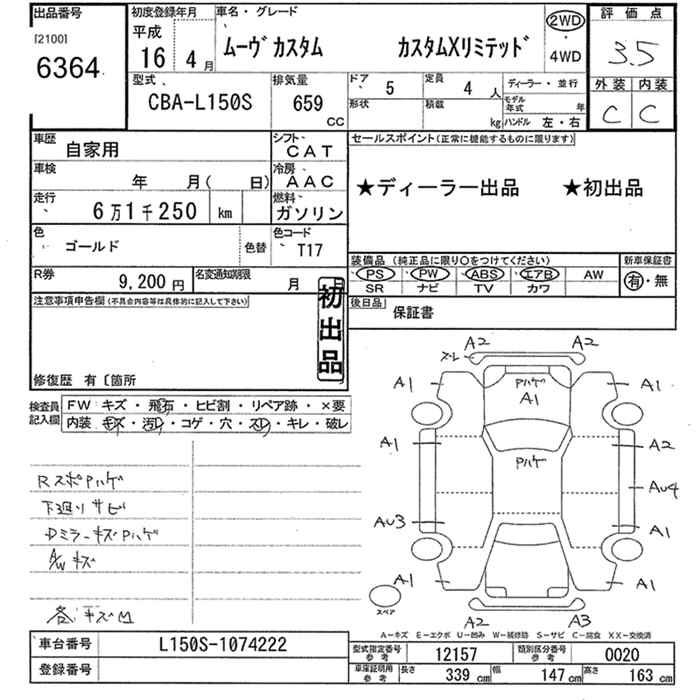 出品番号
[2100]
6364
初度登録年月
平成
16 4月
車名・グレード
ムーヴカスタム カスタムXリミテッド
2WD
・
4WD
評価点
3.5
外装 内装
C C
型式
CBA-L150S
排気量
659
CC
ドア 5
定員 4 人
形状
積載 kg
ディーラー・並行
モデル年式 年
ハンドル 左・右
車歴
自家用
シフト
CAT
車検
年 月( 日)
冷房
AAC
走行
6万1千250 km
燃料
ガソリン
色
ゴールド
色替
色コード
T17
R券
9,200円
名変通知期限
月 日
セールスポイント(正常に機能するものに限ります)
★ディーラー出品 ★初出品
装備品 (純正品に限り○をつけてください)
PS PW ABS エアB AW
SR ナビ TV カワ
新車保証書
有・無
後日品
保証書
注意事項申告欄(不具合内容等は具体的に記入して下さい)
初出品
修復歴 有〔箇所
検査員記入欄
FW キズ・飛石・ヒビ割・リペア跡・×要
内装 キズ・汚レ・コゲ・穴・スレ・キレ・破レ
Rスポ Pハゲ
下廻りサビ
DミラーキズPハゲ
A/Wキズ
各キズM
A2 A2
スレ
A1 Pハゲ A1
A1
A1 A2
Pハゲ
AU4
AU3 A1
A1 A1
スペア
A2 A3
A-キズ E-エクボ U-凹み W-補修跡 S-サビ C-腐食 XX-交換済
車台番号
L150S-1074222
登録番号
型式指定番号
参考
12157
類別区分番号
参考
0020
車庫証明用
参考
長さ 339 cm
幅 147 cm
高さ 163 cm